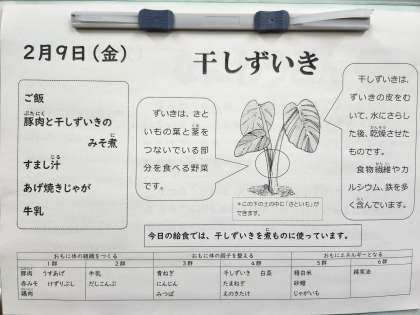 2月9日(金)
干しずいき
ご飯
豚肉と干しずいきの
みそ煮
すまし汁
あげ焼きじゃが
牛乳
ずいきは、さと
いもの葉と茎を
つないでいる部
分を食べる野菜
です。
干しずいきは、
ずいきの皮をむ
いて、水にさらし
た後、乾燥させた
ものです。
食物繊維やカ
ルシウム、鉄を多
く含んでいます。
*この下の土の中に「さといも」が
できます。
今日の給食では、干しずいきを煮ものに使っています。
おもに体の組織をつくる おもに体の調子を整える おもにエネルギーとなる
1群 2群 3群 4群 5群 6群
豚肉 うすあげ 牛乳 青ねぎ 干しずいき 白菜 精白米 綿実油
赤みそ けずりぶし だしこんぶ にんじん たまねぎ 砂糖
鶏肉 みつば えのきたけ じゃがいも